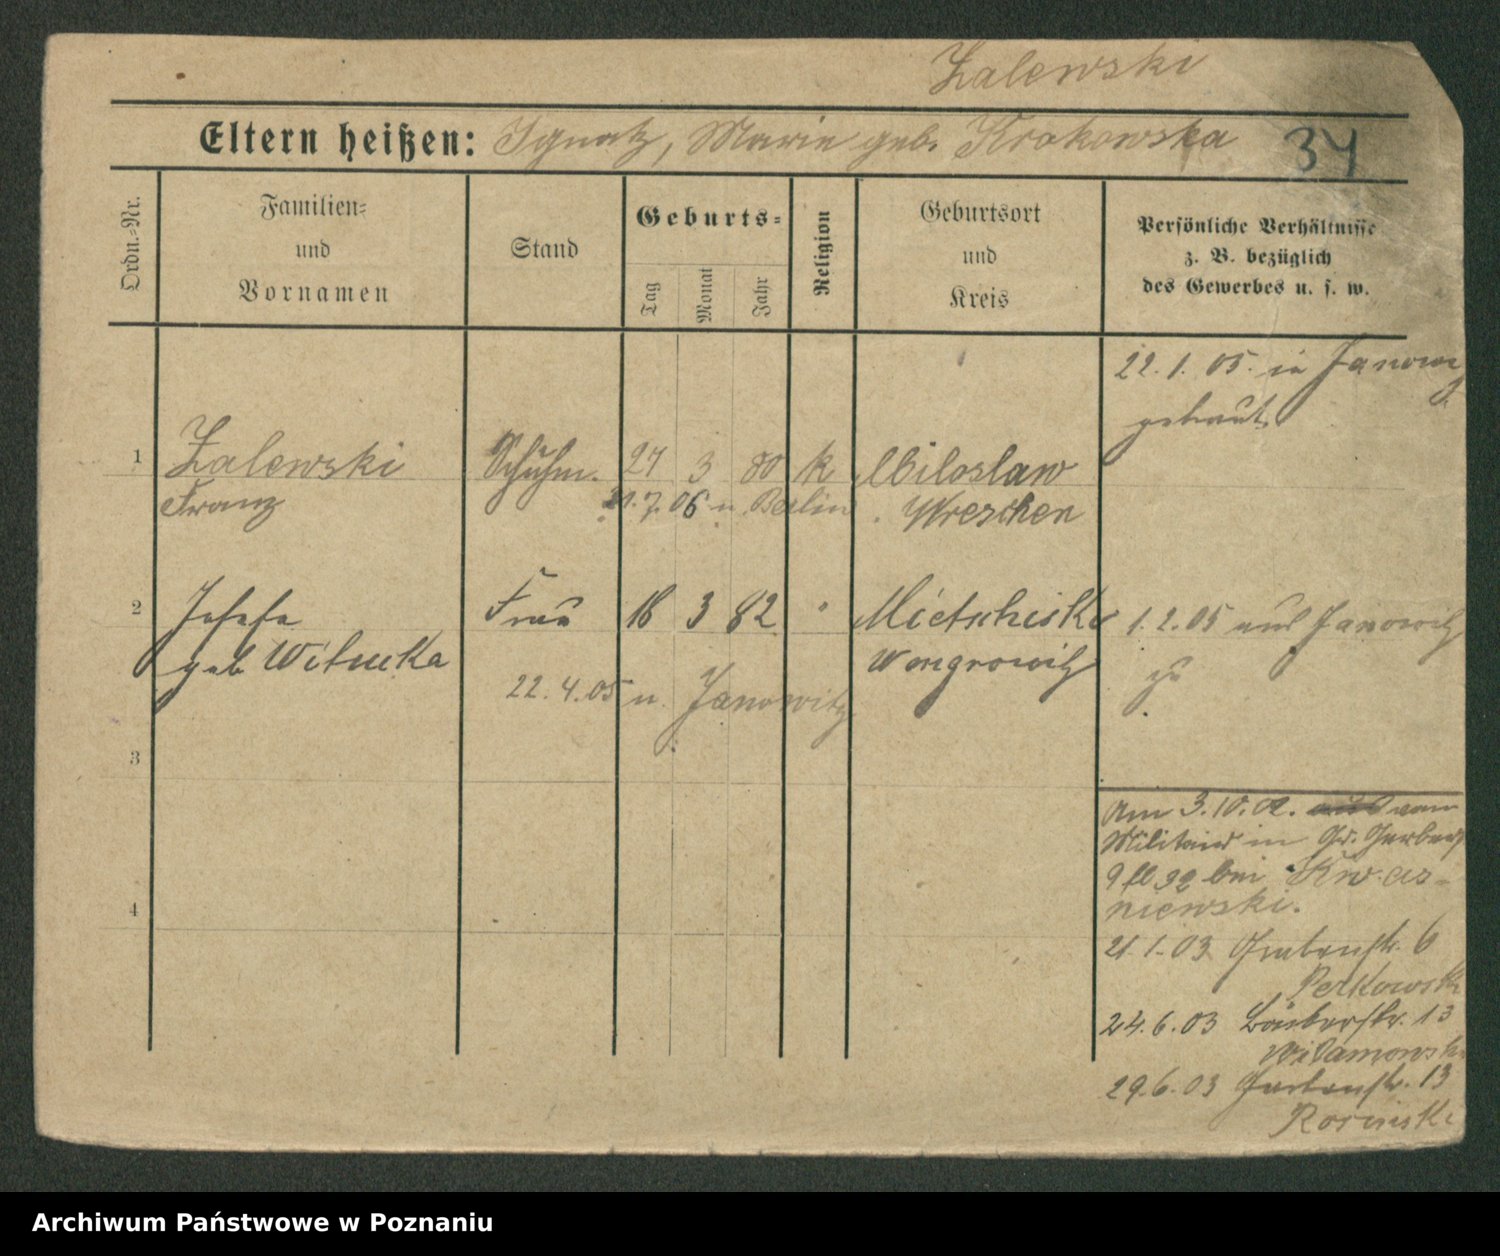 Zalewski
Eltern heißen: Ignatz, Marie geb. Krakowska
34
Ordn.-Nr.
Familien-
und
Vornamen
Stand
Geburts-
Tag
Monat
Jahr
Religion
Geburtsort
und
Kreis
Persönliche Verhältnisse
z. B. bezüglich
des Gewerbes u. s. w.
22. 1. 05. in Janowitz
getraut.
1
Zalewski
Franz
Schuhm.
27 3 80 k
Miloslaw
Wreschen
21.7.06 n. Berlin
2
Josefa
geb Witucka
Frau
18 3 82 "
Mietschisko
Wongrowitz
1.2.05 aus Janowitz
zu
22.4.05 n. Janowitz
3
Am 3.10.02. vom
Militair in Gr. Gerberst
9 bei Kwas-
niewski.
4
21.1.03 Grabenstr. 6
Perkowski
24.6.03 13
29.6.03 Gartenstr. 13
Rosinski
Archiwum Państwowe w Poznaniu